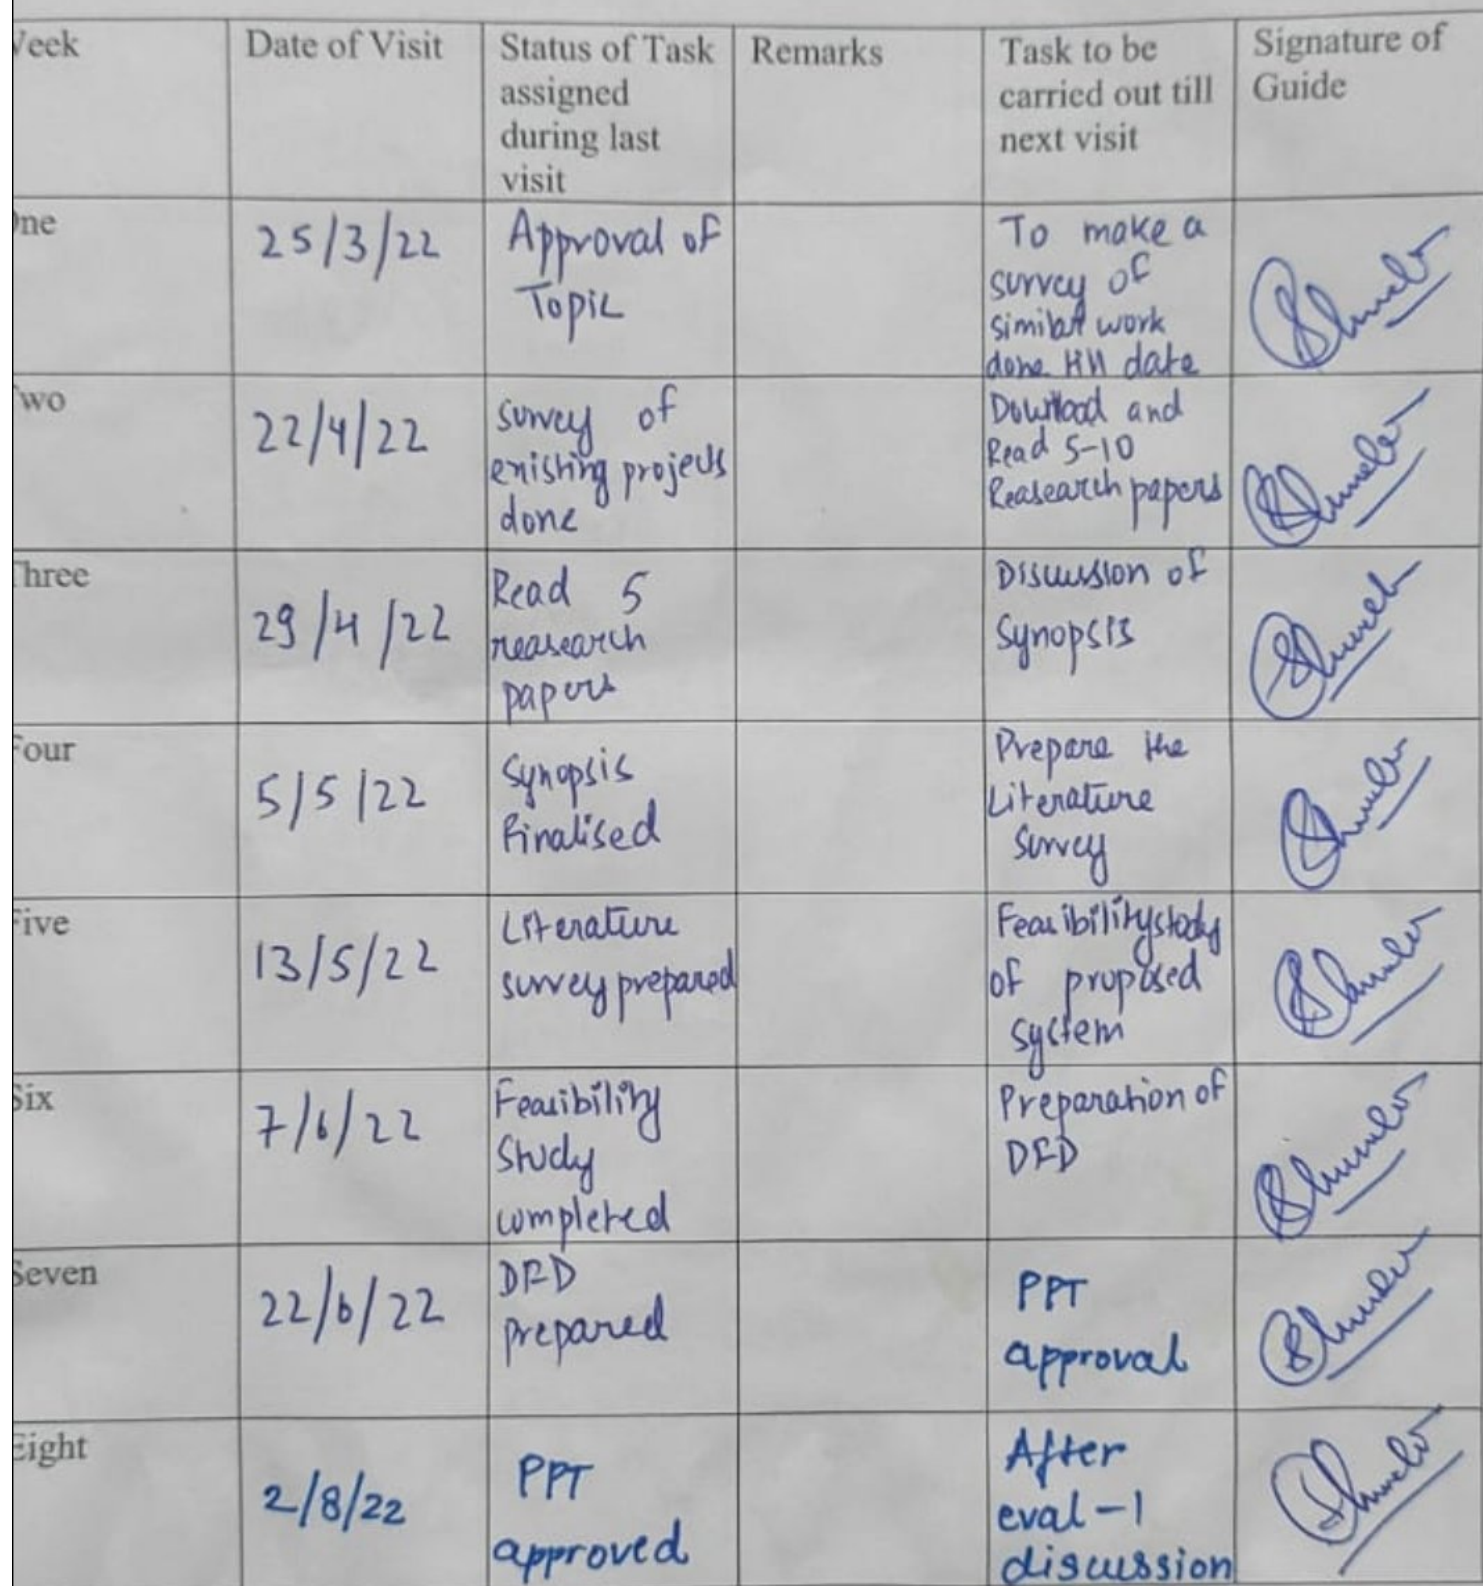 Week
Date of Visit
Status of Task
assigned
during last
visit
Remarks
Task to be
carried out till
next visit
Signature of
Guide
One
25/3/22
Approval of
Topic
To make a
survey of
similar work
done till date
Two
22/4/22
survey of
existing projects
done
Download and
Read 5-10
Reasearch papers
Three
29/4/22
Read 5
reasearch
papers
Discussion of
Synopsis
Four
5/5/22
Synopsis
Finalised
Prepare the
Literature
survey
Five
13/5/22
Literature
survey prepared
Feasibility study
of proposed
system
Six
7/6/22
Feasibility
Study
completed
Preparation of
DFD
Seven
22/6/22
DFD
prepared
PPT
approval
Eight
2/8/22
PPT
approved
After
eval-1
discussion